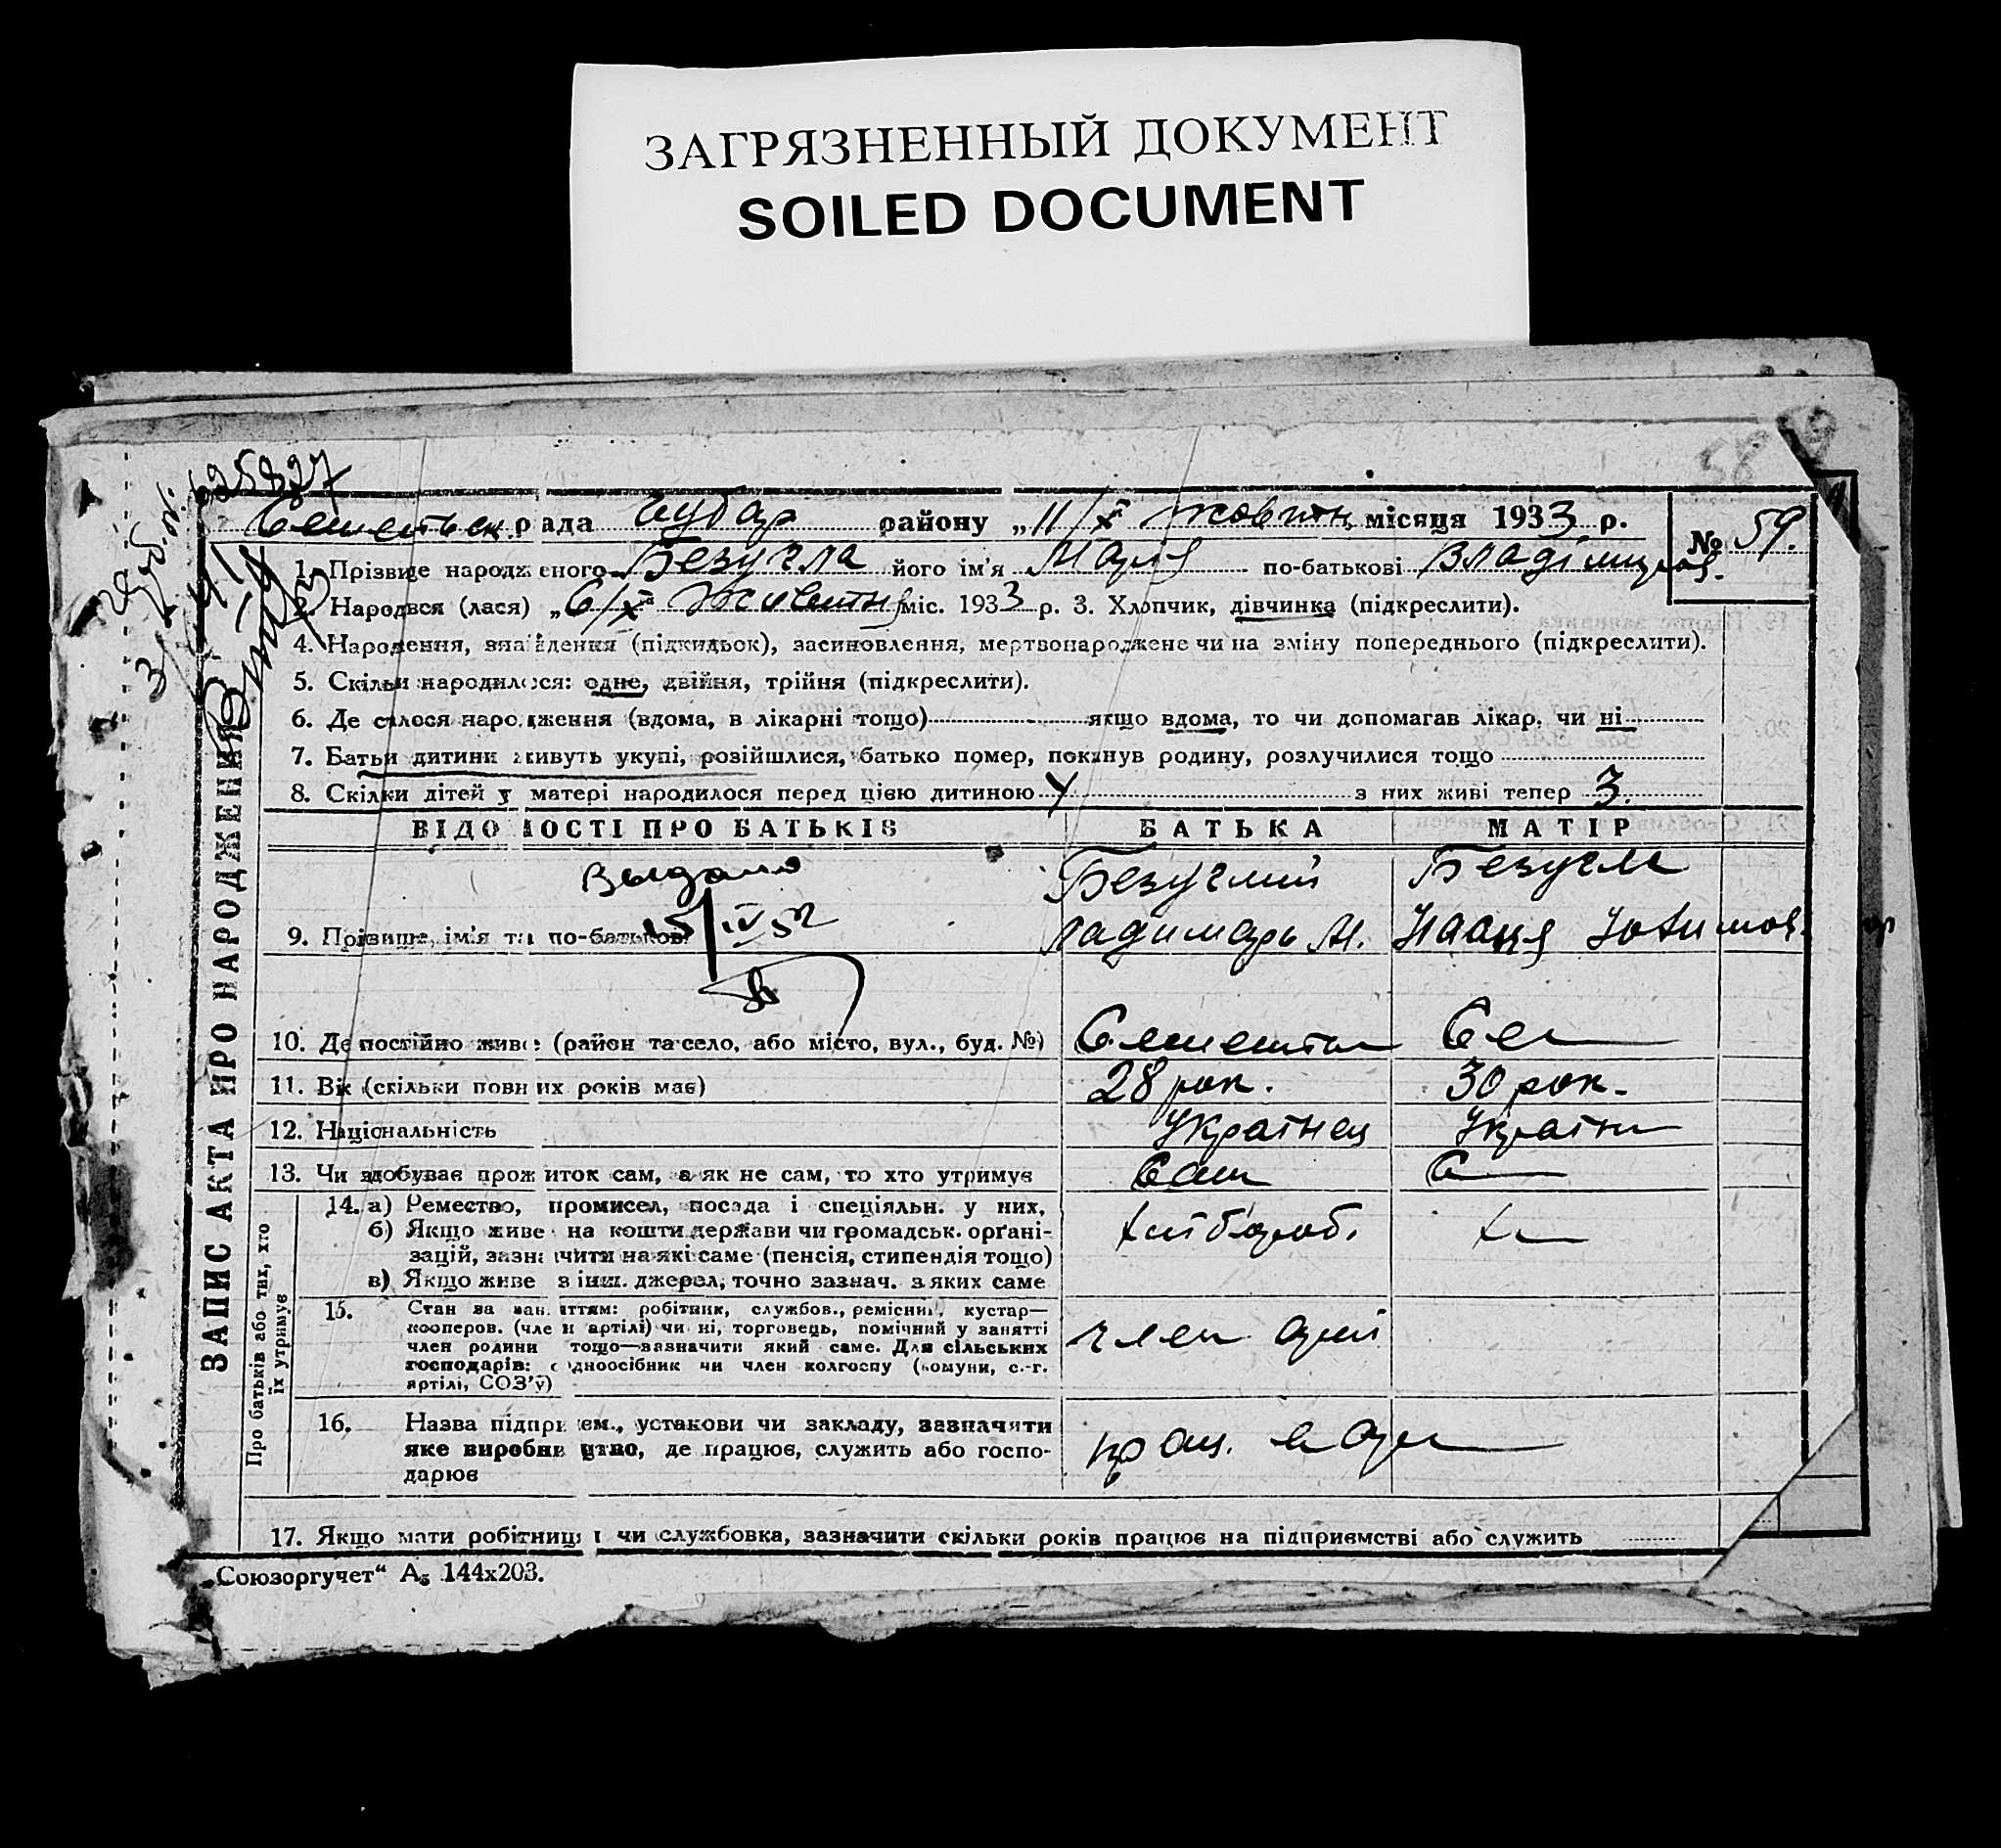 ЗАГРЯЗНЕННЫЙ ДОКУМЕНТ
SOILED DOCUMENT
58 59
625827
рада району „11/X жовтн. місяця 1933 р.
№ 59.
1. Прізвище народженого Безугла його ім'я Марія по-батькові Владімиров.
2. Народвся (лася) „6/X жовтня міс. 1933 р. 3. Хлопчик, дівчинка (підкреслити).
4. Народення, знайдення (підкидьок), засиновлення, мертвонароджене чи на зміну попереднього (підкреслити).
5. Скільки народилося: одне, двійня, трійня (підкреслити).
6. Де сталося народження (вдома, в лікарні тощо) якщо вдома, то чи допомагав лікар. чи ні
7. Батьки дитини живуть укупі, розійшлися, батько помер, покинув родину, розлучилися тощо
8. Скілки дітей у матері народилося перед цією дитиною 4 з них живі тепер 3.
ВІДОМОСТІ ПРО БАТЬКІВ БАТЬКА МАТІР
Выдано
15/IV 52
Безуглий Безугла
9. Прізвище, ім'я та по-батькові М.
10. Де постійно живе (район та село, або місто, вул., буд. №)
11. Вік (скільки повних років має) 28 рок. 30 рок.
12. Національність Українец Україн
13. Чи здобуває прожиток сам, а як не сам, то хто утримує Сам С
14. а) Ремество, промисел, посада і спеціяльн. у них,
б) Якщо живе на кошти держави чи громадськ. орґані-
зацій, зазначити на які саме (пенсія, стипендія тощо)
в) Якщо живе з інш. джерел, точно зазнач. з яких саме
хліборob.
15. Стан за заняттям: робітник, службов., ремісник, кустар—
кооперов. (член артілі) чи ні, торговець, помічний у занятті
член родини тощо—зазначити який саме. Для сільських
господарів: одноосібник чи член колгоспу (комуни, с.-г.
артілі, СОЗ'у)
член артілі
16. Назва підприєм., установи чи закладу, зазначити
яке виробництво, де працює, служить або госпо-
дарює
прац. в
17. Якщо мати робітниця чи службовка, зазначити скільки років працює на підприємстві або служить
ЗАПИС АКТА ПРО НАРОДЖЕННЯ
Про батьків або тих, хто
їх утримує
„Союзоргучет“ А₅ 144x203.